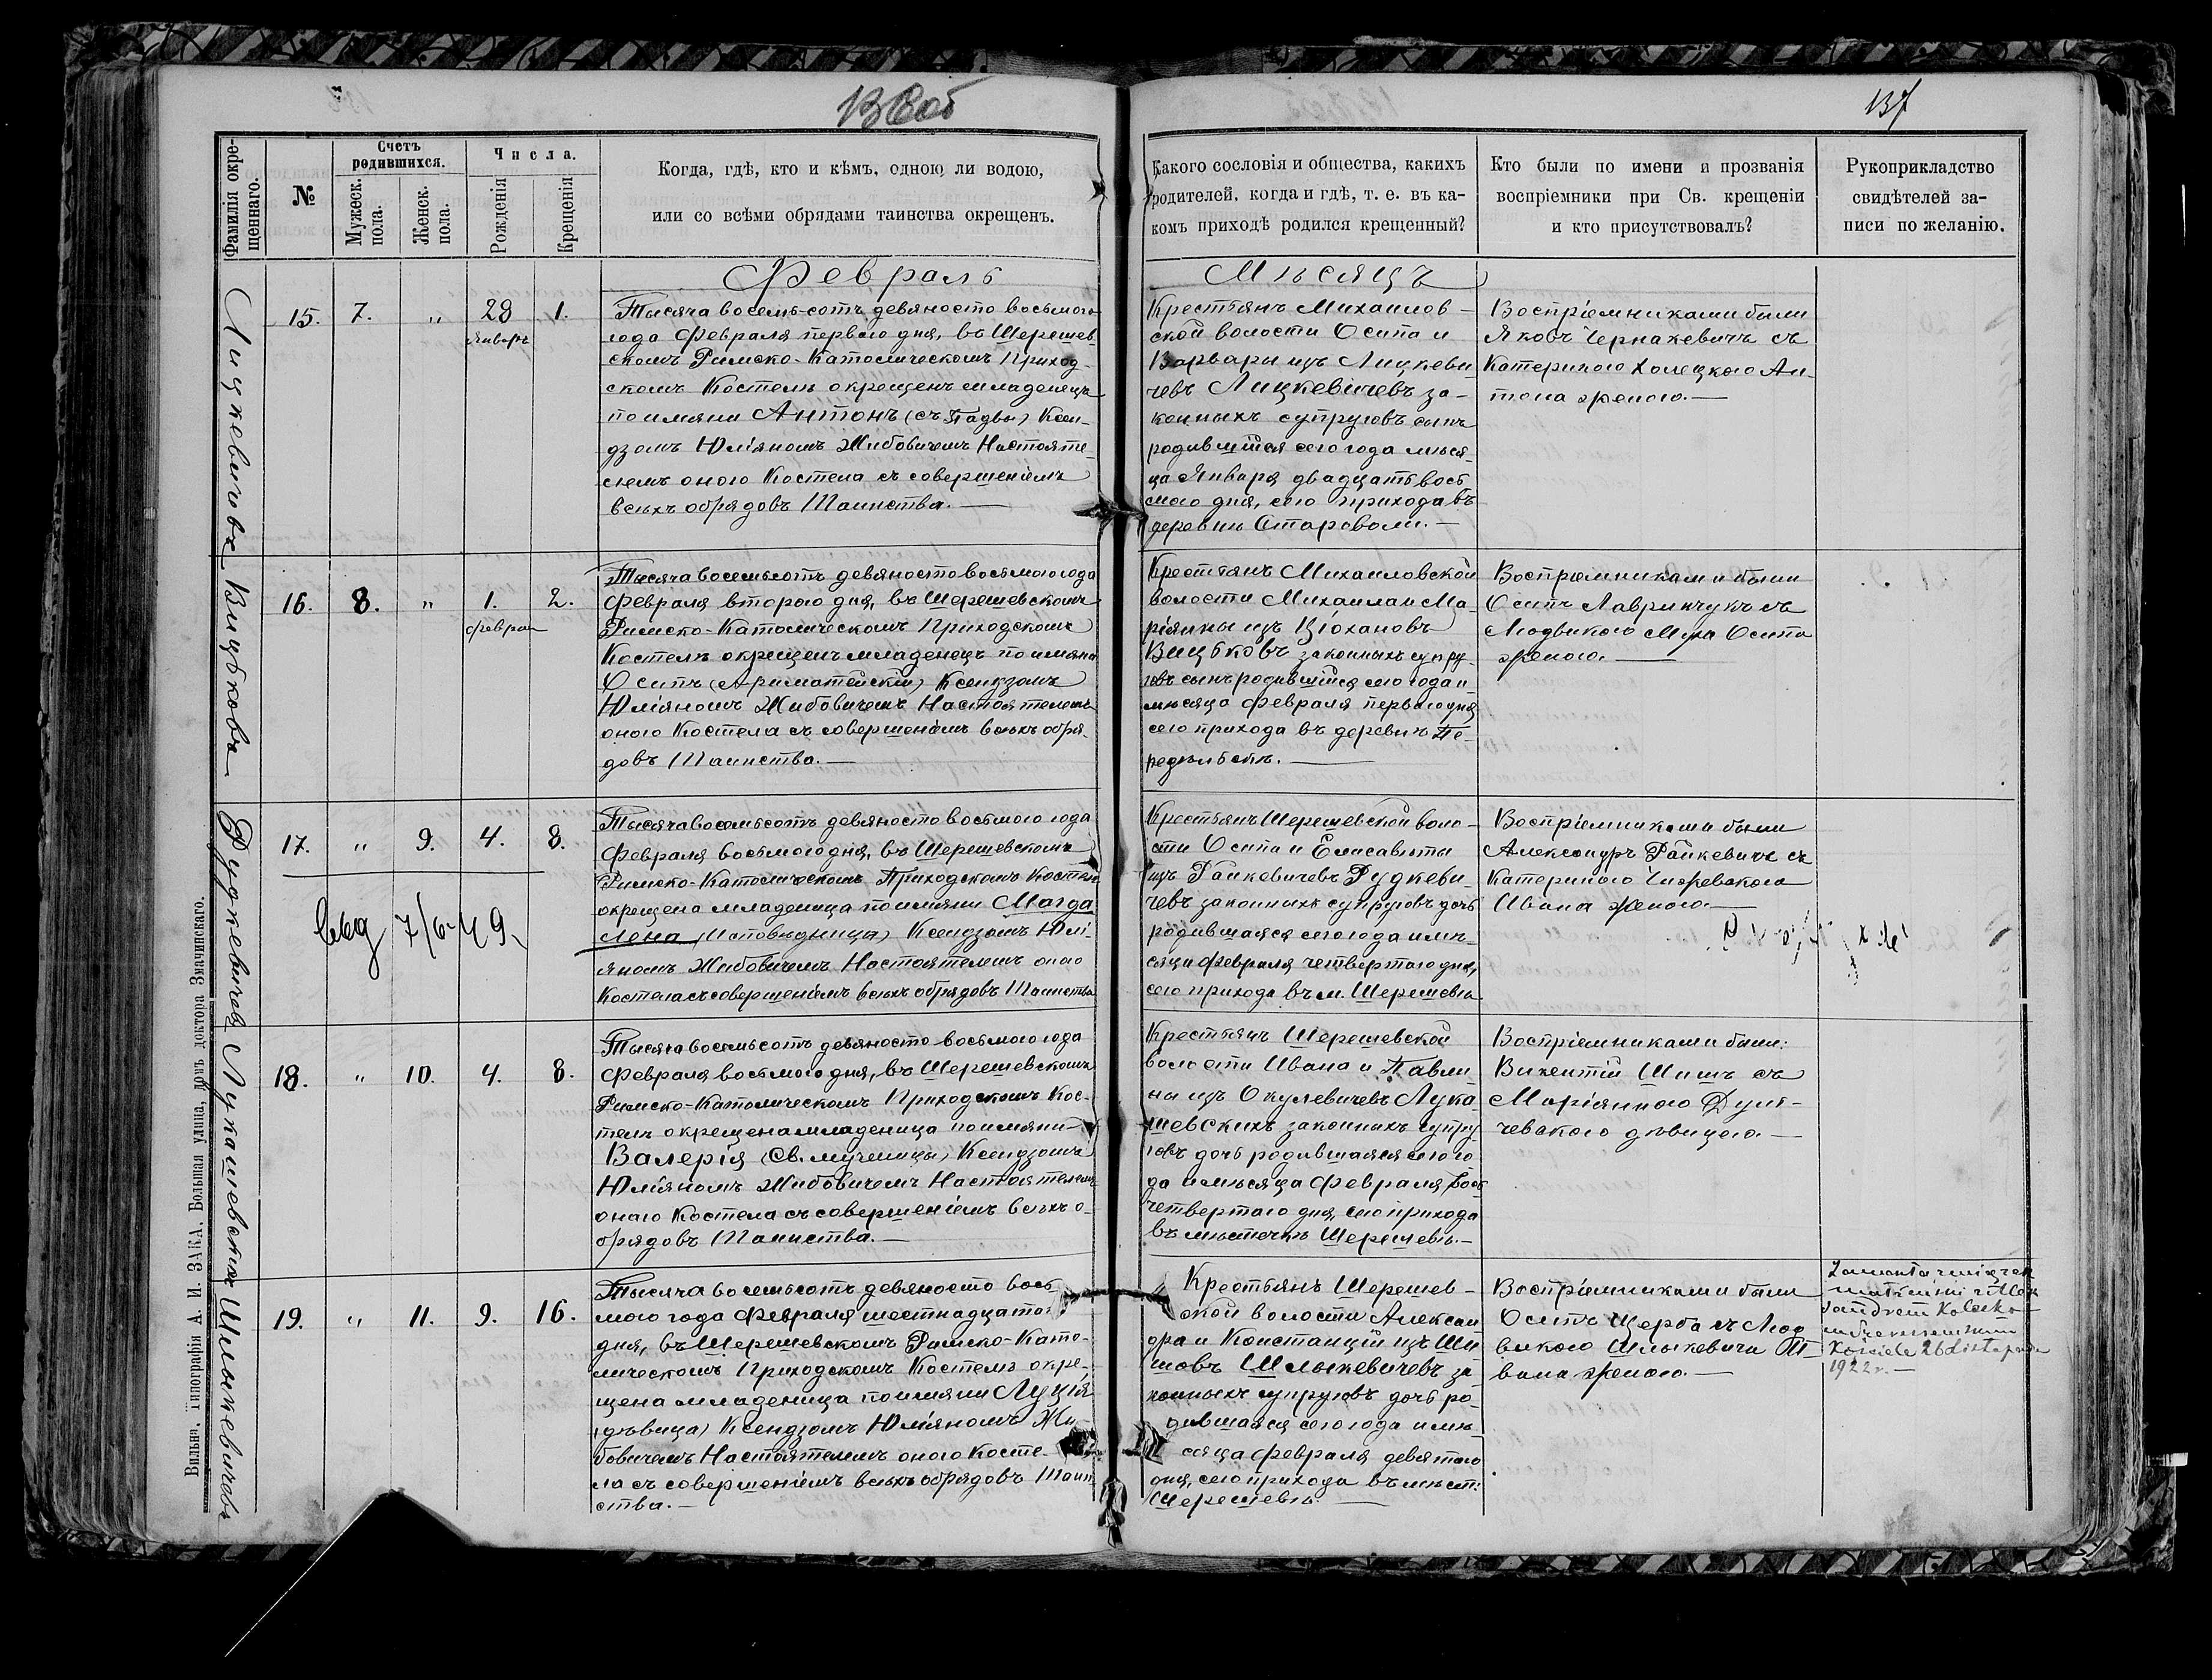 137
Фамилія окре-
щеннаго.
№
Счетъ
родившихся.
Мужеск.
пола.
Женск.
пола.
Числа.
Рожденія
Крещенія
Когда, гдѣ, кто и кѣмъ, одною ли водою,
или со всѣми обрядами таинства окрещенъ.
Какого сословія и общества, какихъ
родителей, когда и гдѣ, т. е. въ ка-
комъ приходѣ родился крещенный?
Кто были по имени и прозванія
воспріемники при Св. крещеніи
и кто присутствовалъ?
Рукоприкладство
свидѣтелей за-
писи по желанію.
Февраль
Мѣсяцъ
Лицкевичовъ
15. 7. „ 28 1.
Январь
Тысяча восемь-сотъ девяносто восьмого
года Февраля перваго дня, въ Шерешев
скомъ Римско-Католическомъ Приход-
скомъ Костелѣ окрещенъ младенецъ
по имяни Антонъ (съ Падвы) Ксен-
дзомъ Юліяномъ Жибовичемъ Настояте-
лемъ оного Костела съ совершеніемъ
всѣхъ обрядовъ Таинства.—
Крестьянъ Михаилов-
ской волости Осипа и
Варвары изъ Лицкеви-
чевъ Лицкевичевъ за-
конныхъ супруговъ сынъ
родившійся сего года мѣся-
ца Января двадцать вось
мого дня, сего прихода въ
деревнѣ Староволи.—
Воспріемниками были
Яковъ Чернакевичъ съ
Катериною Холецкою Ан-
тона женою.—
Вицбковъ
16. 8. „ 1. 2.
Феврал
Тысяча восемьсотъ девяносто восьмого года
Февраля второго дня, въ Шерешевскомъ
Римско-Католическомъ Приходскомъ
Костелѣ окрещенъ младенецъ по имяни
Осипъ (Ариматейскій) Ксендзомъ
Юліяномъ Жибовичемъ Настоятелемъ
оного Костела съ совершеніемъ всѣхъ обря-
довъ Таинства.—
Крестьянъ Михаиловской
волости Михаила и Ма-
ріянны изъ Цюхановъ
Вицбковъ законныхъ супру-
говъ сынъ родившійся сего года и
мѣсяца Февраля перваго дня
сего прихода въ деревнѣ Пе-
редѣльскѣ.—
Воспріемниками были
Осипъ Лавринчукъ съ
Людвикою Муха Осипа
женою.—
Рудкевичовъ
17. „ 9. 4. 8.
Тысяча восемьсотъ девяносто восьмого года
Февраля восьмого дня, въ Шерешевскомъ
Римско-Католическомъ Приходскомъ Костелѣ
окрещена младеница по имяни Магда
лена (Исповѣдница) Ксендзомъ Юлі-
яномъ Жибовичемъ Настоятелемъ оного
Костела съ совершеніемъ всѣхъ обрядовъ Таинства
7/6-49
Крестьянъ Шерешевской воло-
сти Осипа и Елисаветы
изъ Райкевичевъ Рудкеви-
чевъ законныхъ супруговъ дочь
родившаяся сего года и мѣ-
сяца Февраля четвертаго дня,
сего прихода въ м. Шерешевѣ
Воспріемниками были
Александръ Райкевичъ съ
Катериною Чижевскою
Ивана женою.—
Лукашевскихъ
18. „ 10. 4. 8.
Тысяча восемьсотъ девяносто восьмого года
Февраля восьмого дня, въ Шерешевскомъ
Римско-Католическомъ Приходскомъ Кос-
телѣ окрещена младеница по имяни
Валерія (Св. мученицы) Ксендзомъ
Юліяномъ Жибовичемъ Настоятелемъ
оного Костела съ совершеніемъ всѣхъ о-
брядовъ Таинства.—
Крестьянъ Шерешевской
волости Ивана и Павли-
ны изъ Окулевичевъ Лука-
шевскихъ законныхъ супру-
говъ дочь родившаяся сего го
да и мѣсяца Февраля
четвертаго дня, сего прихода
въ мѣстечкѣ Шерешевѣ.—
Воспріемниками были:
Викентій Шишъ съ
Маріянною Дуля-
чевскою дѣвицею.—
Шлыкевичовъ
19. „ 11. 9. 16.
Тысяча восемьсотъ девяносто вось
мого года Февраля шестнадцатого
дня, въ Шерешевскомъ Римско-Като-
лическомъ Приходскомъ Костелѣ окре-
щена младеница по имяни Луція
(дѣвица) Ксендзомъ Юліяномъ Жи
бовичемъ Настоятелемъ оного Косте-
ла съ совершеніемъ всѣхъ обрядовъ Таин
ства.—
Крестьянъ Шерешев-
ской волости Александ
дра и Констанціи изъ Ши
шовъ Шлыкевичевъ за-
конныхъ супруговъ дочь ро-
дившаяся сего года и мѣ-
сяца Февраля девятого
дня, сего прихода въ мѣст:
Шерешевѣ.—
Воспріемниками были
Осипъ Щерба съ Люд
викою Шлыкевича И-
вана женою.—
Kościele 26 Listopada
1922 r.—
Вильна. Типографія А. И. ЗАКА. Большая улица, домъ доктора Змачинскаго.